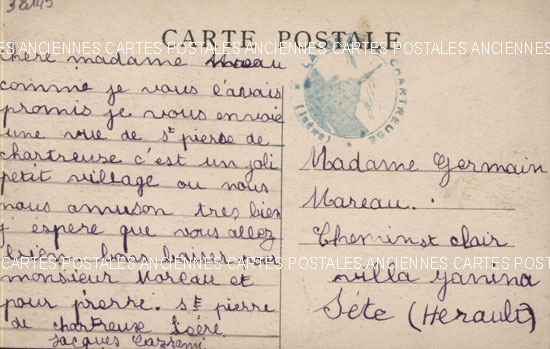 38145
CARTE POSTALE
CARTES POSTALES ANCIENNES CARTES POSTALES ANCIENNES CARTES POSTALES ANCIENNES
chere madame Mareau
comme je vous l'avais
promis je vous envoie
une vue de St pierre de
chartreuse c'est un joli
petit village ou nous
nous amuson tres bien
j espere que vous allez
bien
monsieur Mareau et
pour pierre. St pierre
de chartreuse Isére
Jacques
CHARTREUSE
(Isère)
Madame Germain
Mareau.
Chemin St clair
villa Janina
Séte (Herault)